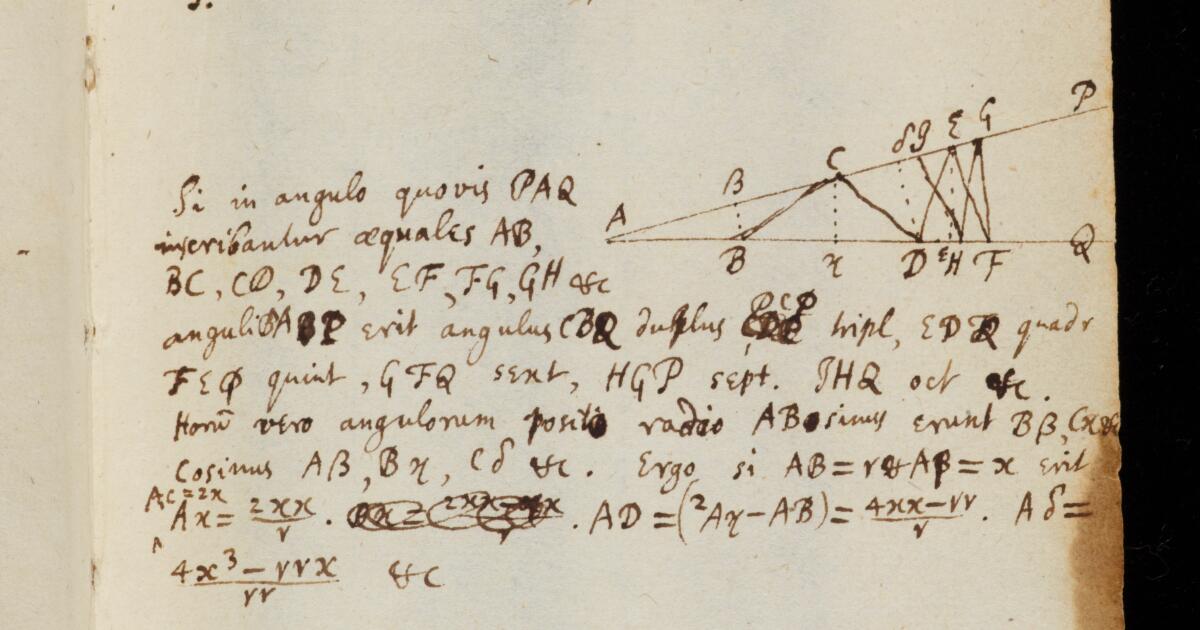 P
δ ϑ E G
C
β
A
B
ϰ
D ε H F
Q
Si in angulo quovis PAQ
inscribantur æquales AB,
BC, CD, DE, EF, FG, GH &c
anguli BAP erit angulus CBQ duplus PCD tripl, EDQ quadr
FEP quint, GFQ sext, HGP sept. IHQ oct &c.
Horū vero angulorum posito radio AB sinus erunt Bβ, Cϰ &c
Cosinus Aβ, Bϰ, Cδ &c. Ergo si AB=r & Aβ=x erit
AC=2x
Aϰ= 2xx/r . AD=(2Aϰ−AB)= 4xx−rr/r . Aδ=
4x³−rrx/rr &c